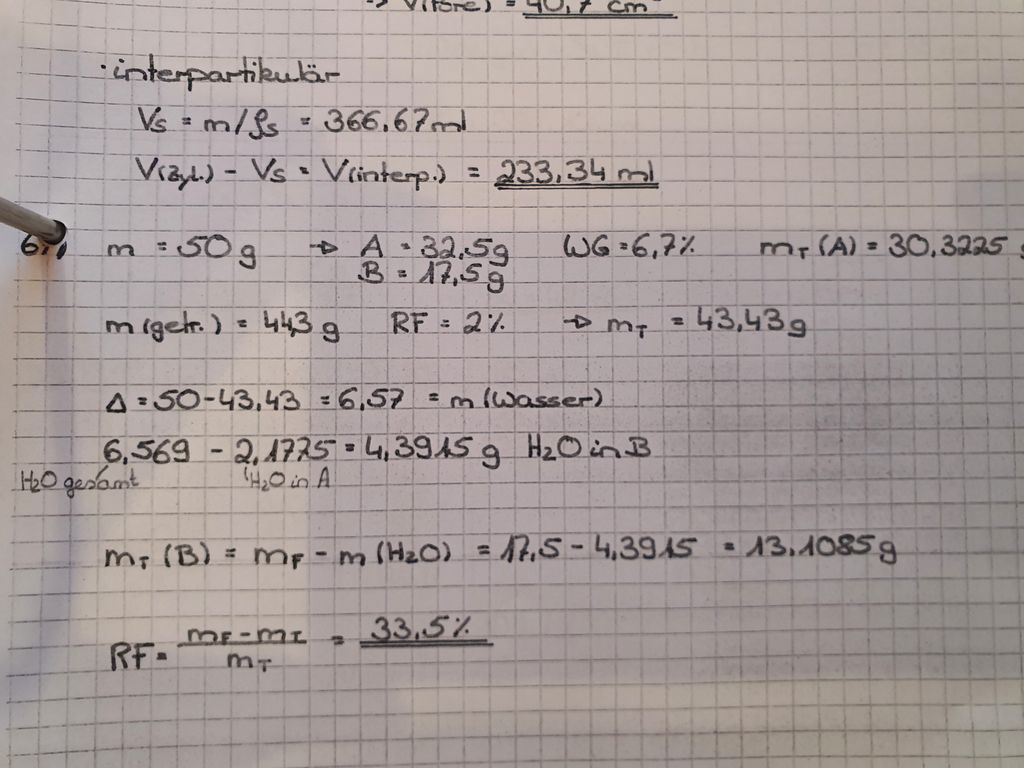 -> V(Pore) = 40,7 cm
· interpartikulär
Vs = m/ρs = 366,67 ml
V(Zyl.) - Vs = V(interp.) = 233,34 ml
6.) m = 50 g -> A = 32,5g WG = 6,7% mT (A) = 30,3225 g
B = 17,5g
m (getr.) = 44,3 g RF = 2% -> mT = 43,43 g
Δ = 50 - 43,43 = 6,57 = m (Wasser)
6,569 - 2,1775 = 4,3915 g H2O in B
H2O gesamt H2O in A
mT (B) = mF - m (H2O) = 17,5 - 4,3915 = 13,1085 g
RF = mF - mT / mT = 33,5%